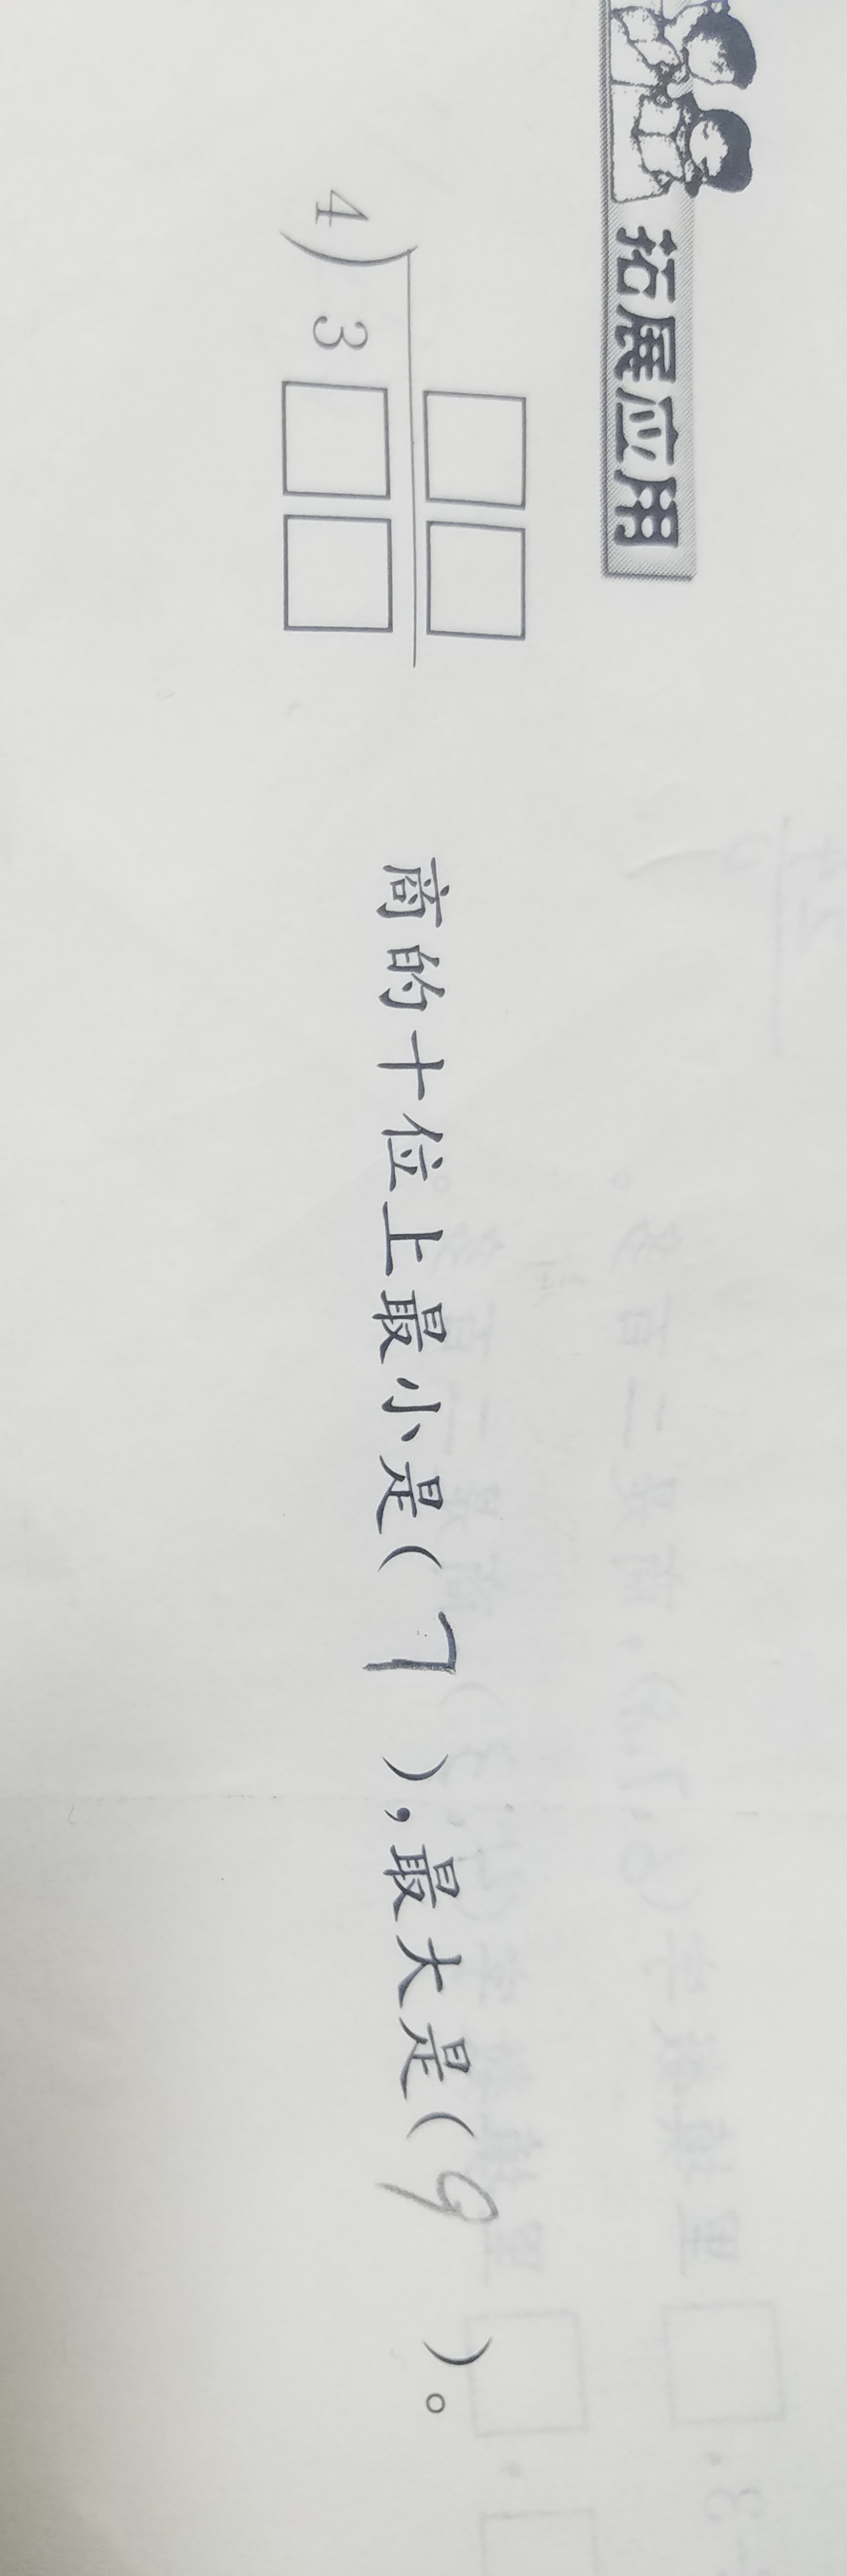 拓展应用
□□
4)3□□
商的十位上最小是(7),最大是(9)。